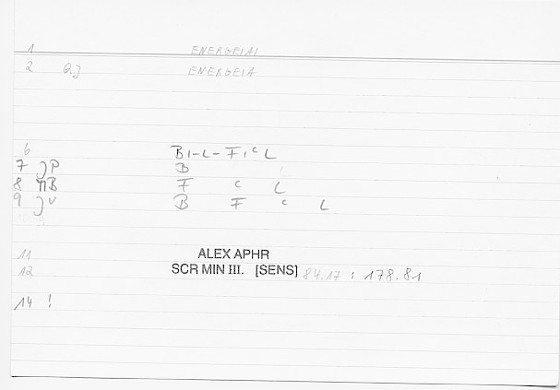 1 ENERGEIAI
2 2J ENERGEIA
6 B1-L-F1cL
7 JP B
8 ΠB F c L
9 JV B F c L
11 ALEX APHR
12 SCR MIN III. [SENS] 84.17 : 178.81
14 !